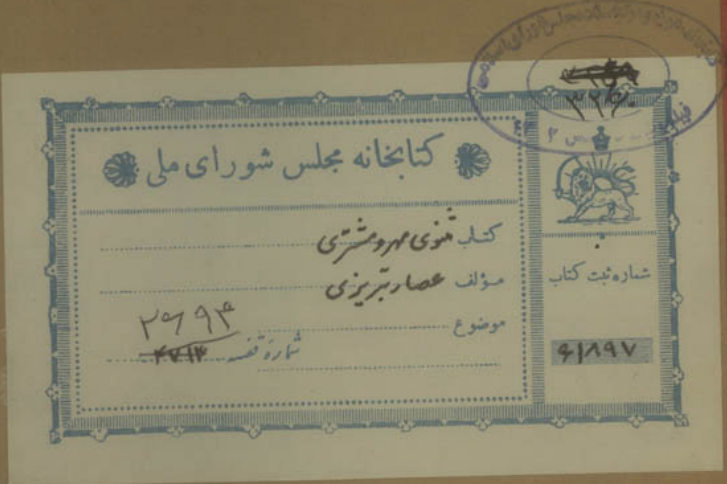 کتابخانه مجلس شورای ملی
کتاب مثنوی مهر و مشتری
مؤلف عصار تبریزی
موضوع
شماره قفسه
۲۶۹۴
۴۷۱۳
شماره ثبت کتاب
۶۱۸۹۷